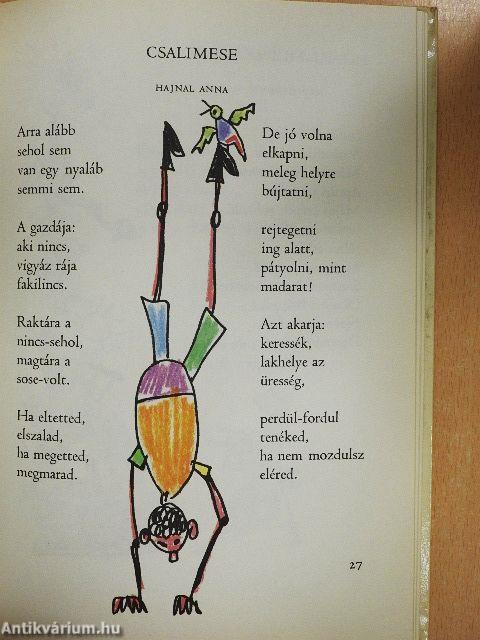 CSALIMESE
HAJNAL ANNA
Arra alább
sehol sem
van egy nyaláb
semmi sem.
A gazdája:
aki nincs,
vigyáz rája
fakilincs.
Raktára a
nincs-sehol,
magtára a
sose-volt.
Ha eltetted,
elszalad,
ha megetted,
megmarad.
De jó volna
elkapni,
meleg helyre
bújtatni,
rejtegetni
ing alatt,
pátyolni, mint
madarat!
Azt akarja:
keressék,
lakhelye az
üresség,
perdül-fordul
tenéked,
ha nem mozdulsz
eléred.
27
Antikvárium.hu